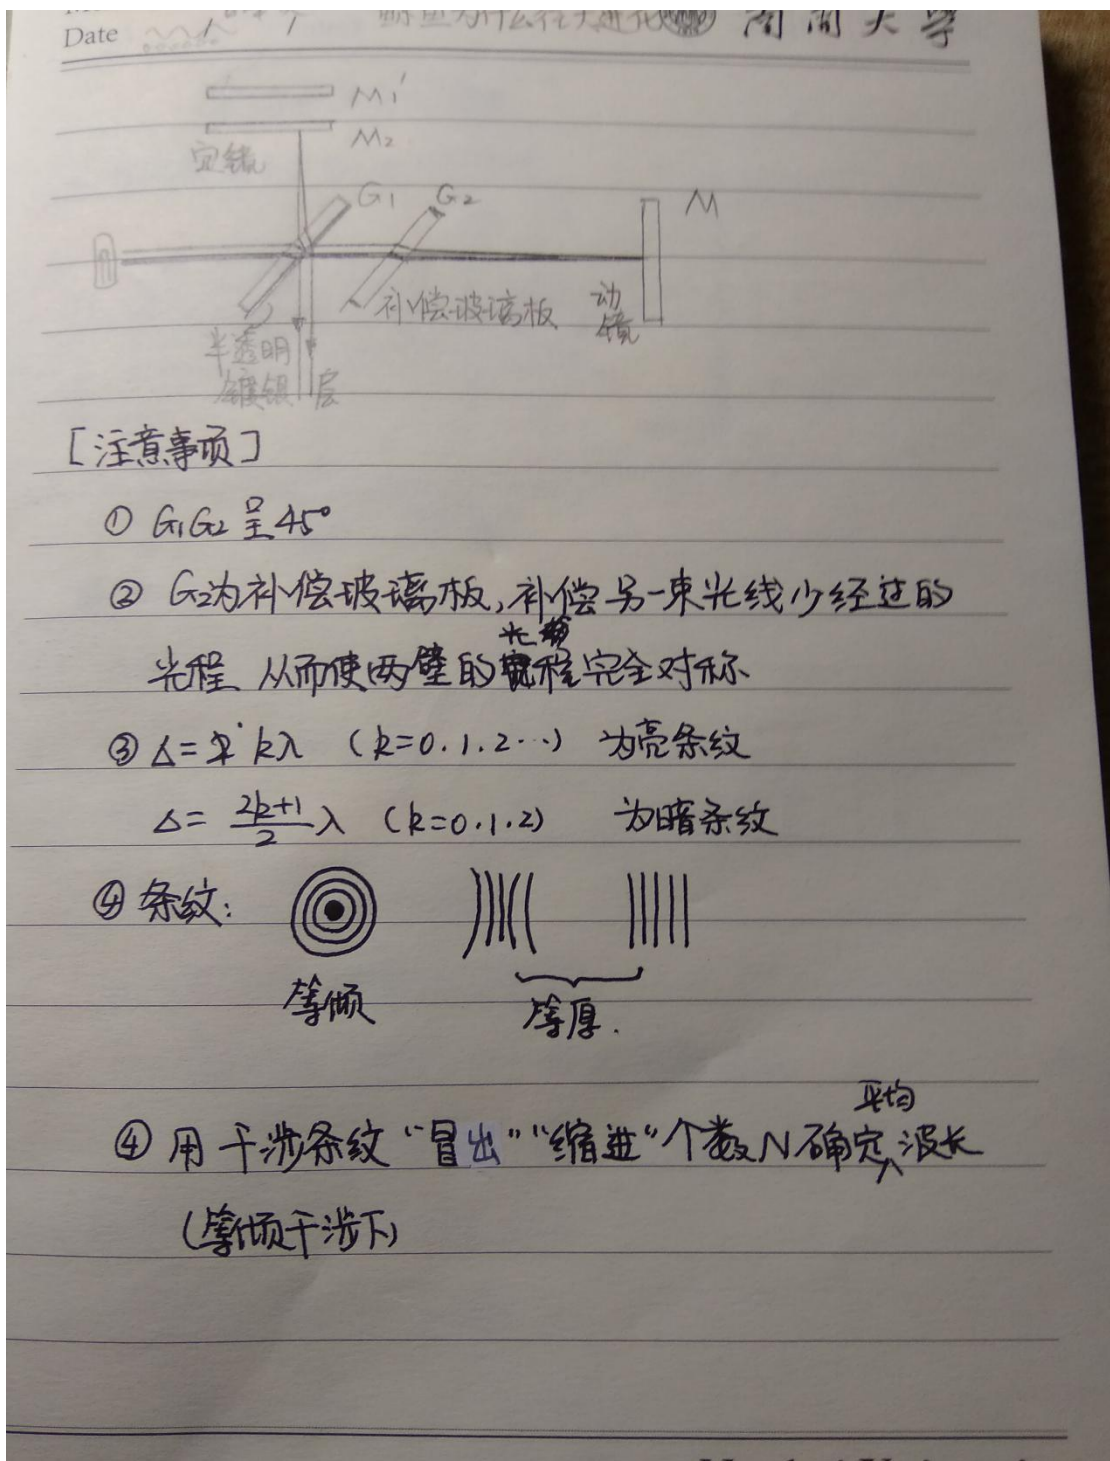 Date
南開大學
M1'
M2
定镜
G1 G2 M
补偿玻璃板
动镜
半透明
镀银层
[注意事项]
① G1G2呈45°
② G2为补偿玻璃板,补偿另一束光线少经过的
光程 从而使两壁的光程完全对称
③ Δ= kλ (k=0.1.2…) 为亮条纹
Δ= (2k+1)/2 λ (k=0.1.2) 为暗条纹
④ 条纹:
等倾
等厚.
④ 用干涉条纹“冒出”“缩进”个数N确定平均波长
(等倾干涉下)